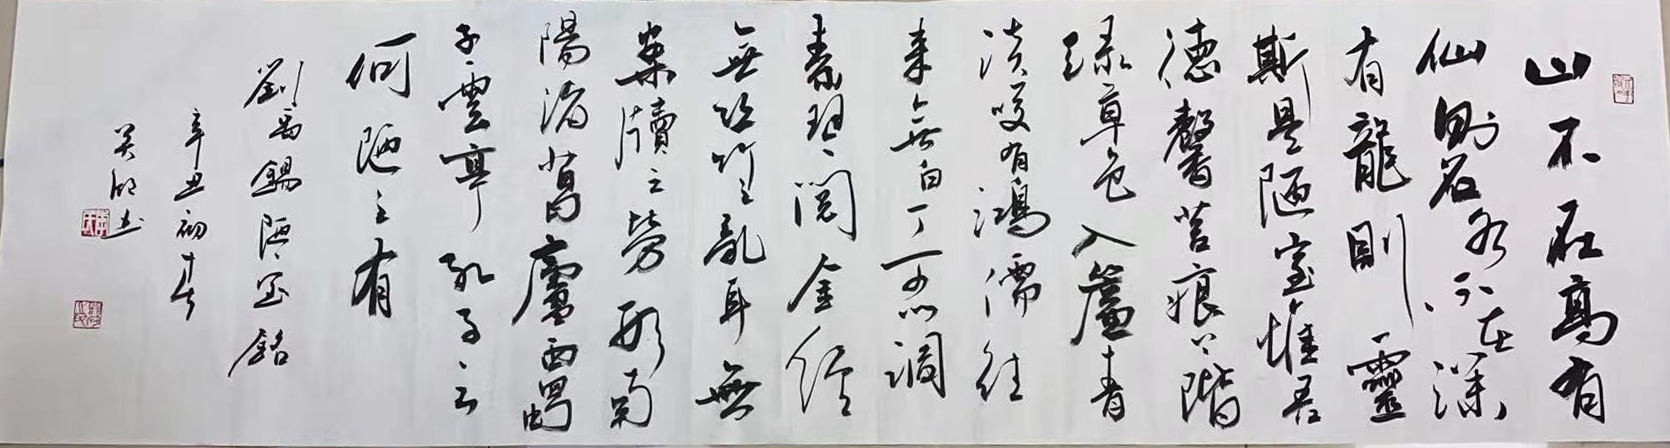 山不在高有
仙則名水不在深
有龍則靈
斯是陋室惟吾
德馨苔痕上階
绿草色入簾青
淡笑有鴻儒往
来無白丁可以调
素琴閲金经
無丝竹之亂耳無
案牘之勞形南
陽诸葛廬西蜀
子雲亭孔子云
何陋之有
劉禹錫陋室銘
辛丑初春
吴 书